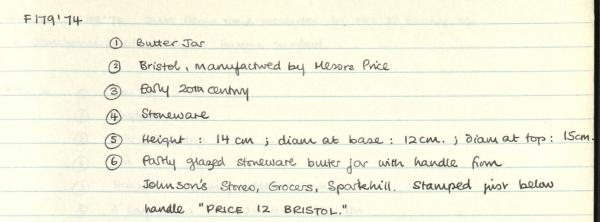 F179'74
① Butter Jar
② Bristol, manufactured by Messrs Price
③ Early 20th century
④ Stoneware
⑤ Height : 14 cm ; diam at base : 12cm. ; diam at top : 15cm.
⑥ Partly glazed stoneware butter jar with handle from
Johnson's Stores, Grocers, Sparkhill. Stamped just below
handle "PRICE 12 BRISTOL."